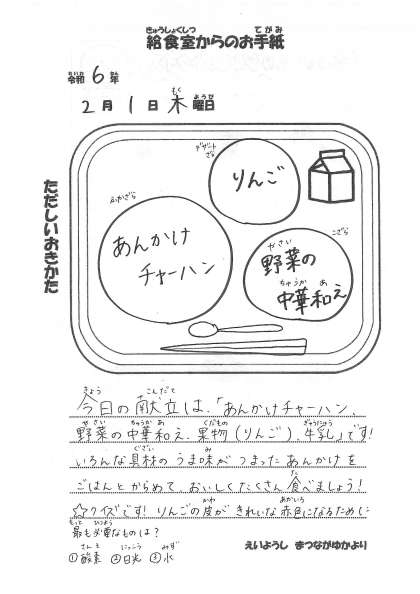 きゅうしょくしつ てがみ
給食室からのお手紙
れいわ ねん
令和 6年
もく ようび
2月1日 木曜日
ただしいおきかた
デザートざら
りんご
ふかざら
あんかけ
チャーハン
こざら
やさい
野菜の
ちゅうか あ
中華和え
きょう こんだて
今日の献立は、「あんかけチャーハン、
やさい ちゅうか あ くだもの ぎゅうにゅう
野菜の中華和え、果物(りんご)、牛乳」です!
ぐざい み
いろんな具材のうま味がつまったあんかけを
た
ごはんとからめて、おいしくたくさん食べましょう!
かわ あかいろ
☆クイズです!りんごの皮がきれいな赤色になるために
もっと ひつよう
最も必要なものは?
さんそ にっこう みず
①酸素 ②日光 ③水
えいようし まつながゆかより